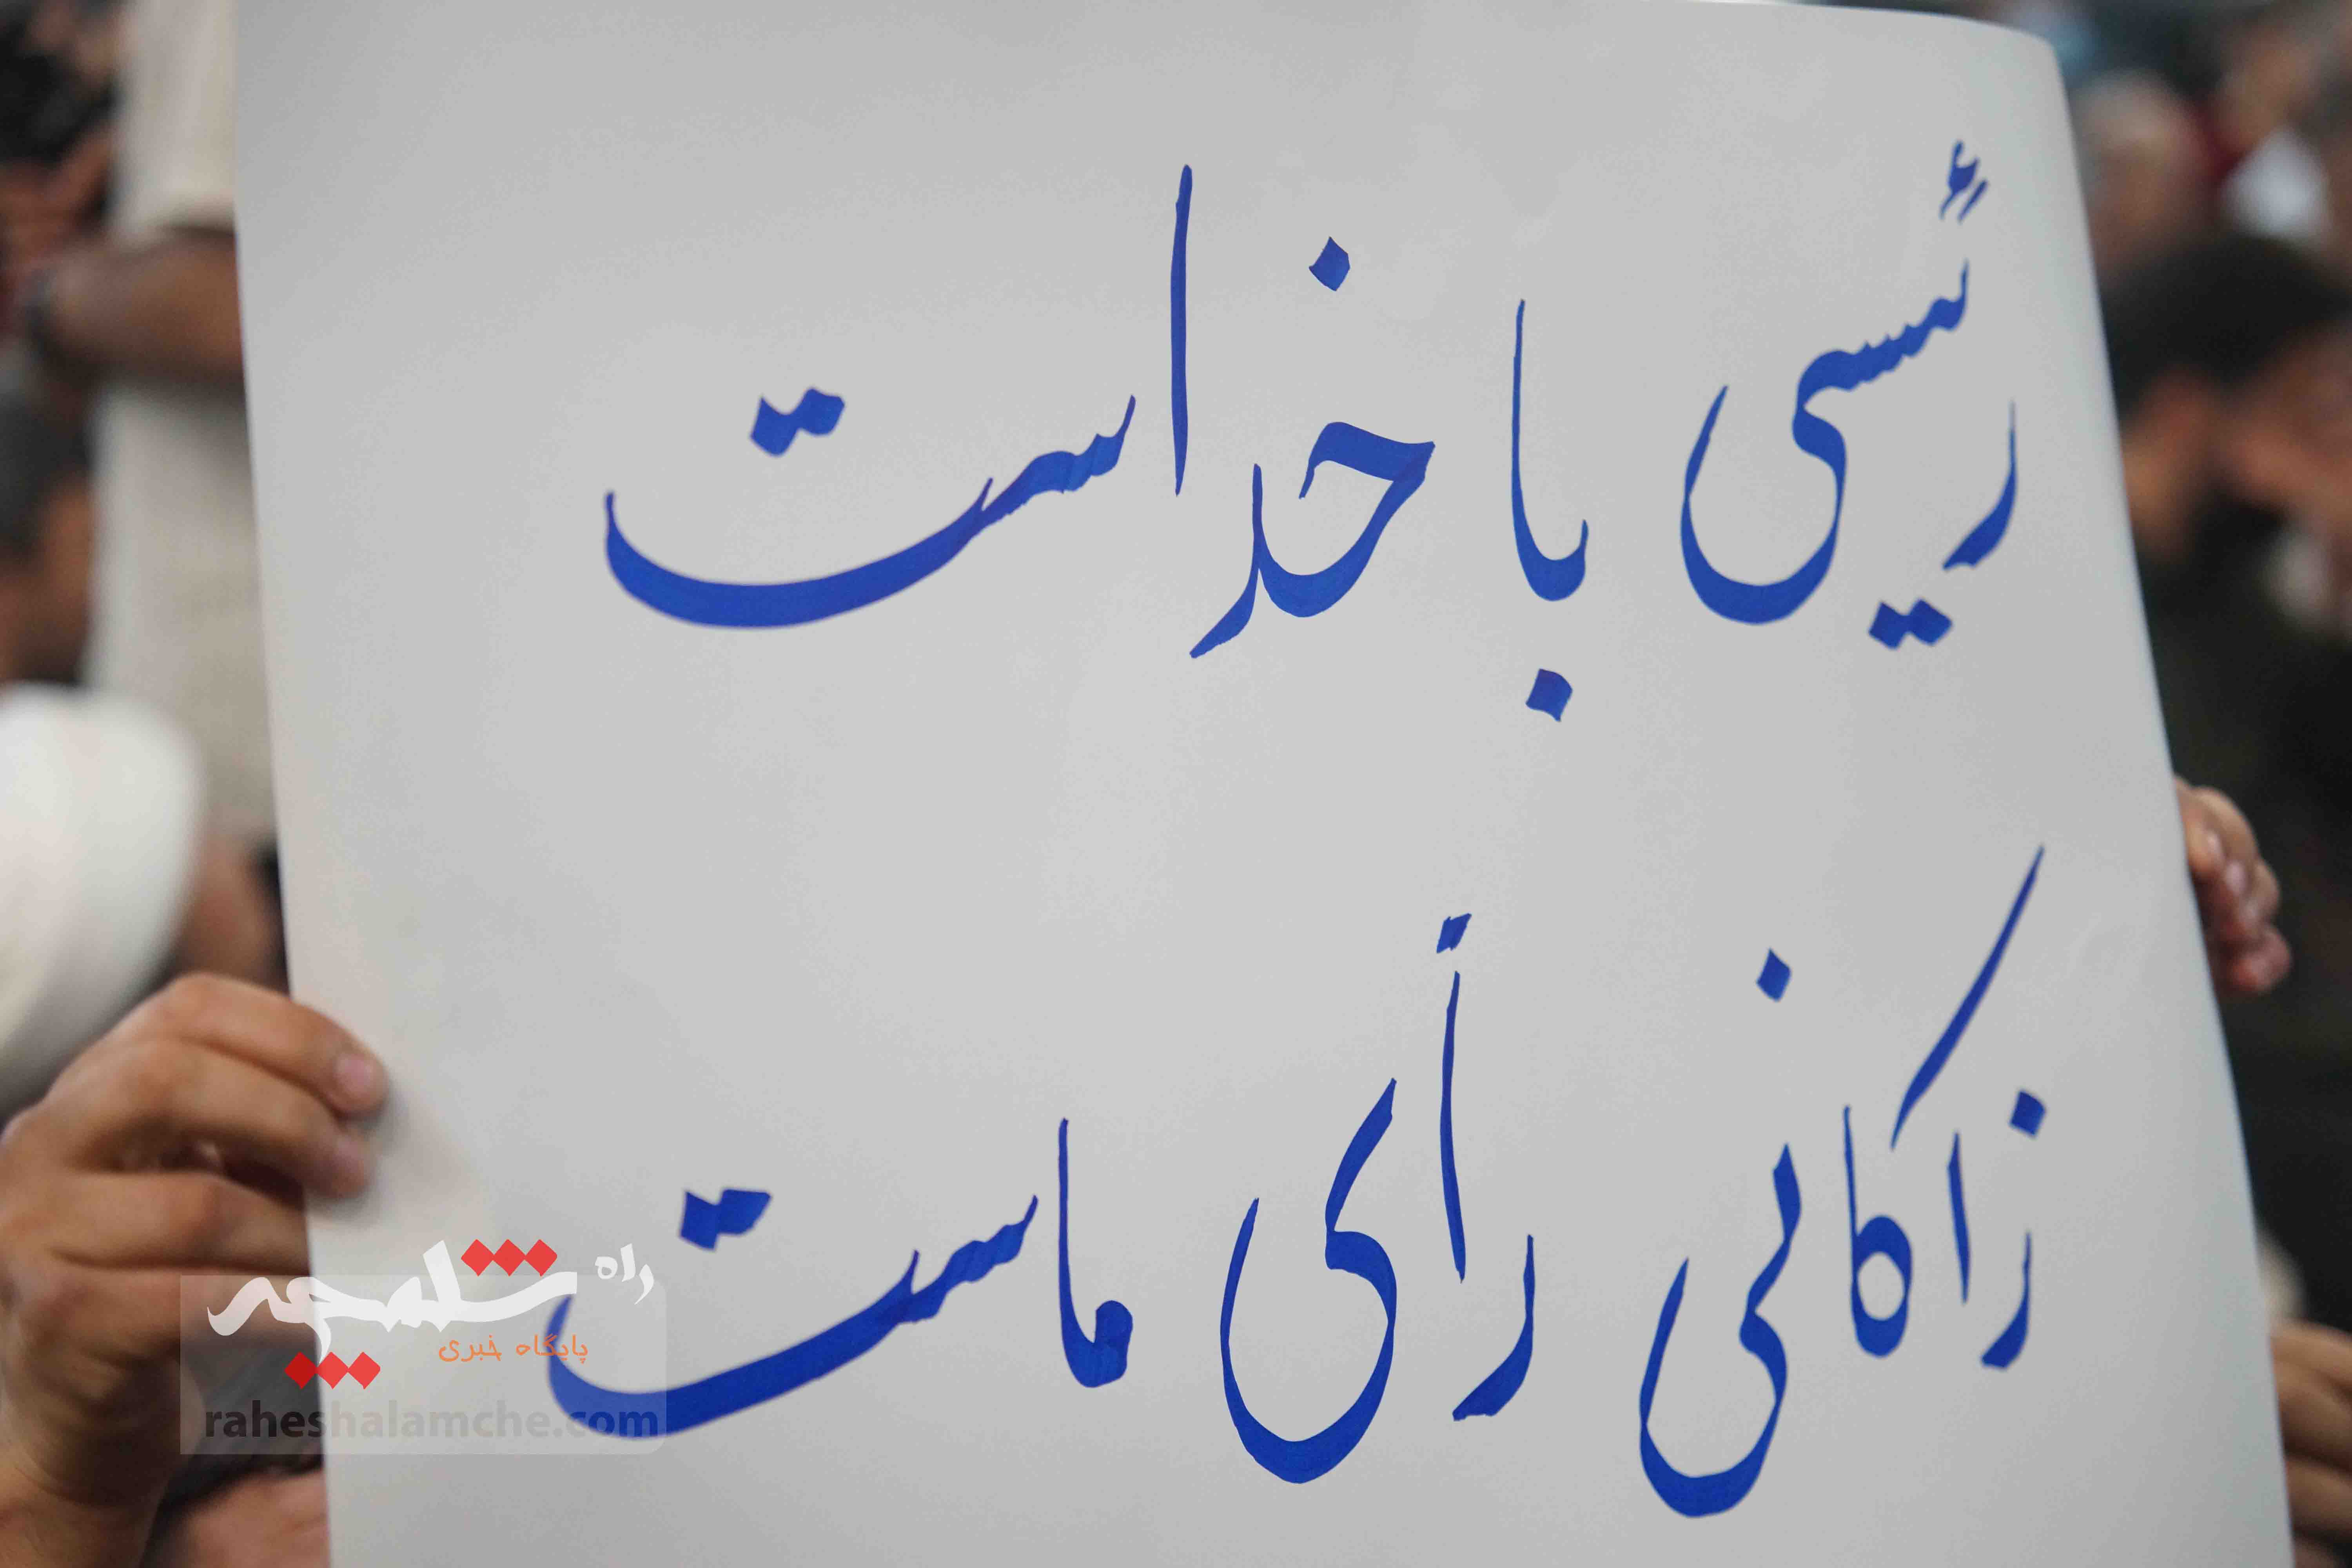 رئیسی با خداست
زاکانی رأی ماست
راه شلمچه
پایگاه خبری
raheshalamche.com